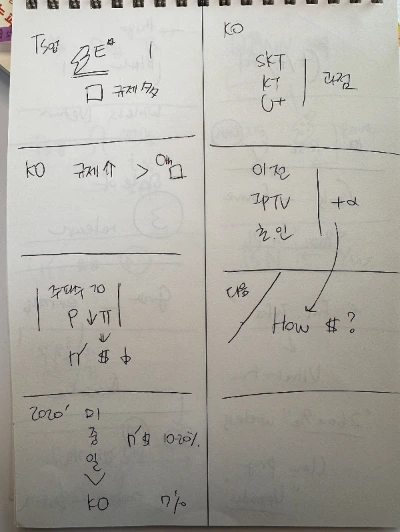 TS업
E
규제
KO 규제 ⇈ > Oth □
P ↓ π
n' $ ↓
2020' 미
중 n'$ 10-20%
일
KO 7%
KO
SKT
KT
U+
과점
이전
IPTV
초.인
+α
다음
How $?